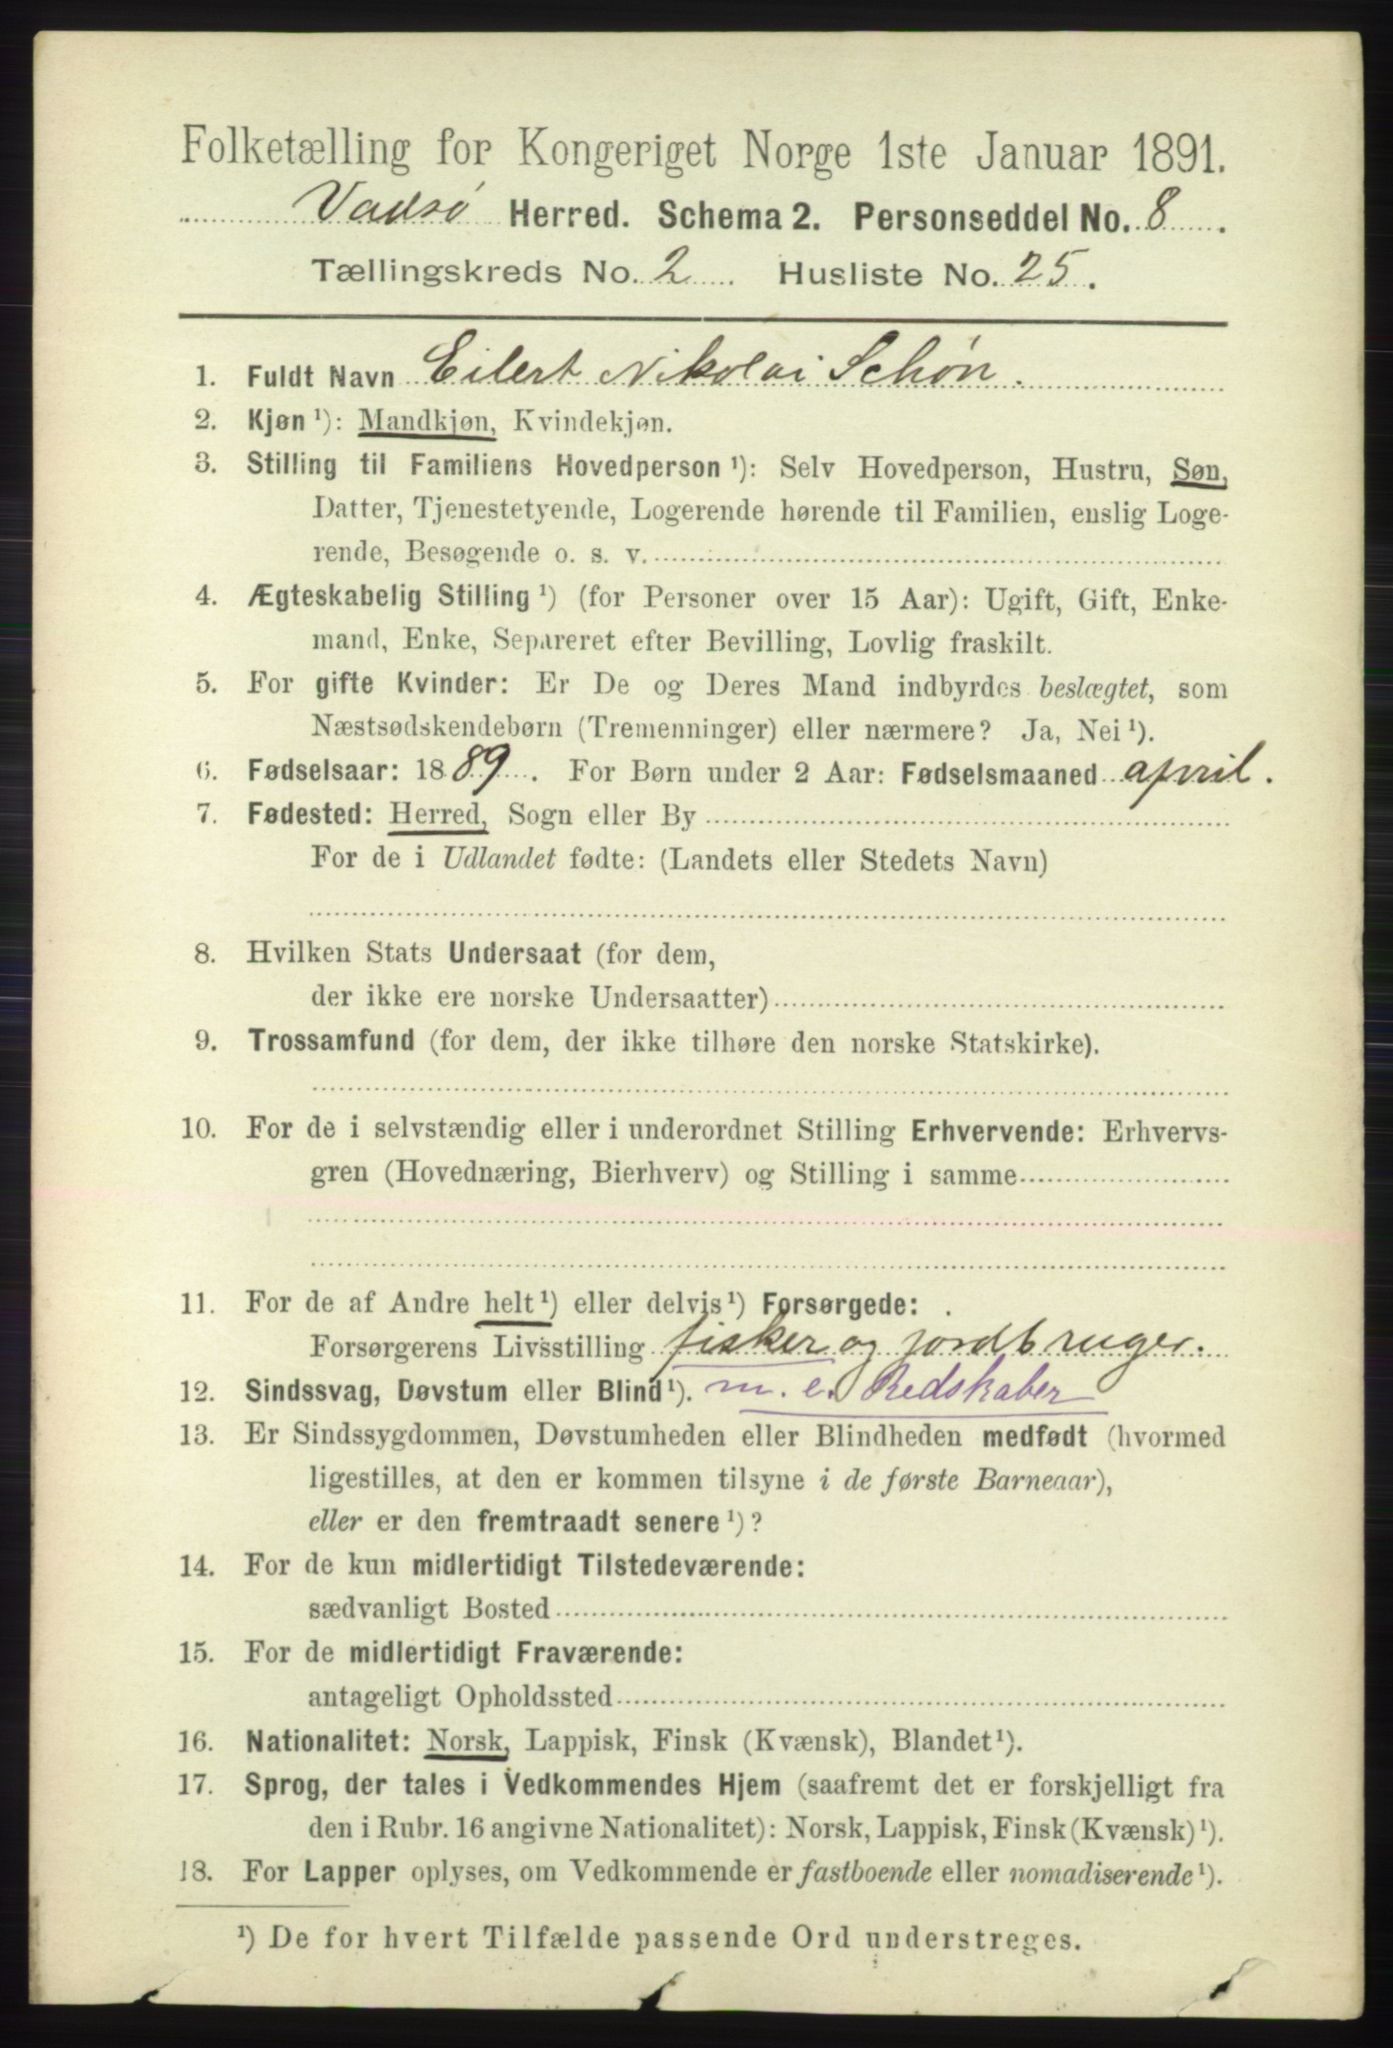 Folketælling for Kongeriget Norge 1ste Januar 1891.
Vadsø Herred. Schema 2. Personseddel No. 8.
Tællingskreds No. 2 Husliste No. 25.
1. Fuldt Navn Eilert Nikolai Schøn.
2. Kjøn ¹): Mandkjøn, Kvindekjøn.
3. Stilling til Familiens Hovedperson ¹): Selv Hovedperson, Hustru, Søn,
Datter, Tjenestetyende, Logerende hørende til Familien, enslig Loge-
rende, Besøgende o. s. v.
4. Ægteskabelig Stilling ¹) (for Personer over 15 Aar): Ugift, Gift, Enke-
mand, Enke, Separeret efter Bevilling, Lovlig fraskilt.
5. For gifte Kvinder: Er De og Deres Mand indbyrdes beslægtet, som
Næstsødskendebørn (Tremenninger) eller nærmere? Ja, Nei ¹).
6. Fødselsaar: 1889. For Børn under 2 Aar: Fødselsmaaned april.
7. Fødested: Herred, Sogn eller By
For de i Udlandet fødte: (Landets eller Stedets Navn)
8. Hvilken Stats Undersaat (for dem,
der ikke ere norske Undersaatter)
9. Trossamfund (for dem, der ikke tilhøre den norske Statskirke).
10. For de i selvstændig eller i underordnet Stilling Erhvervende: Erhvervs-
gren (Hovednæring, Bierhverv) og Stilling i samme
11. For de af Andre helt ¹) eller delvis ¹) Forsørgede:
Forsørgerens Livsstilling fisker og jordbruger.
12. Sindssvag, Døvstum eller Blind ¹). m. e. Redskaber
13. Er Sindssygdommen, Døvstumheden eller Blindheden medfødt (hvormed
ligestilles, at den er kommen tilsyne i de første Barneaar),
eller er den fremtraadt senere ¹)?
14. For de kun midlertidigt Tilstedeværende:
sædvanligt Bosted
15. For de midlertidigt Fraværende:
antageligt Opholdssted
16. Nationalitet: Norsk, Lappisk, Finsk (Kvænsk), Blandet ¹).
17. Sprog, der tales i Vedkommendes Hjem (saafremt det er forskjelligt fra
den i Rubr. 16 angivne Nationalitet): Norsk, Lappisk, Finsk (Kvænsk) ¹).
18. For Lapper oplyses, om Vedkommende er fastboende eller nomadiserende ¹).
¹) De for hvert Tilfælde passende Ord understreges.